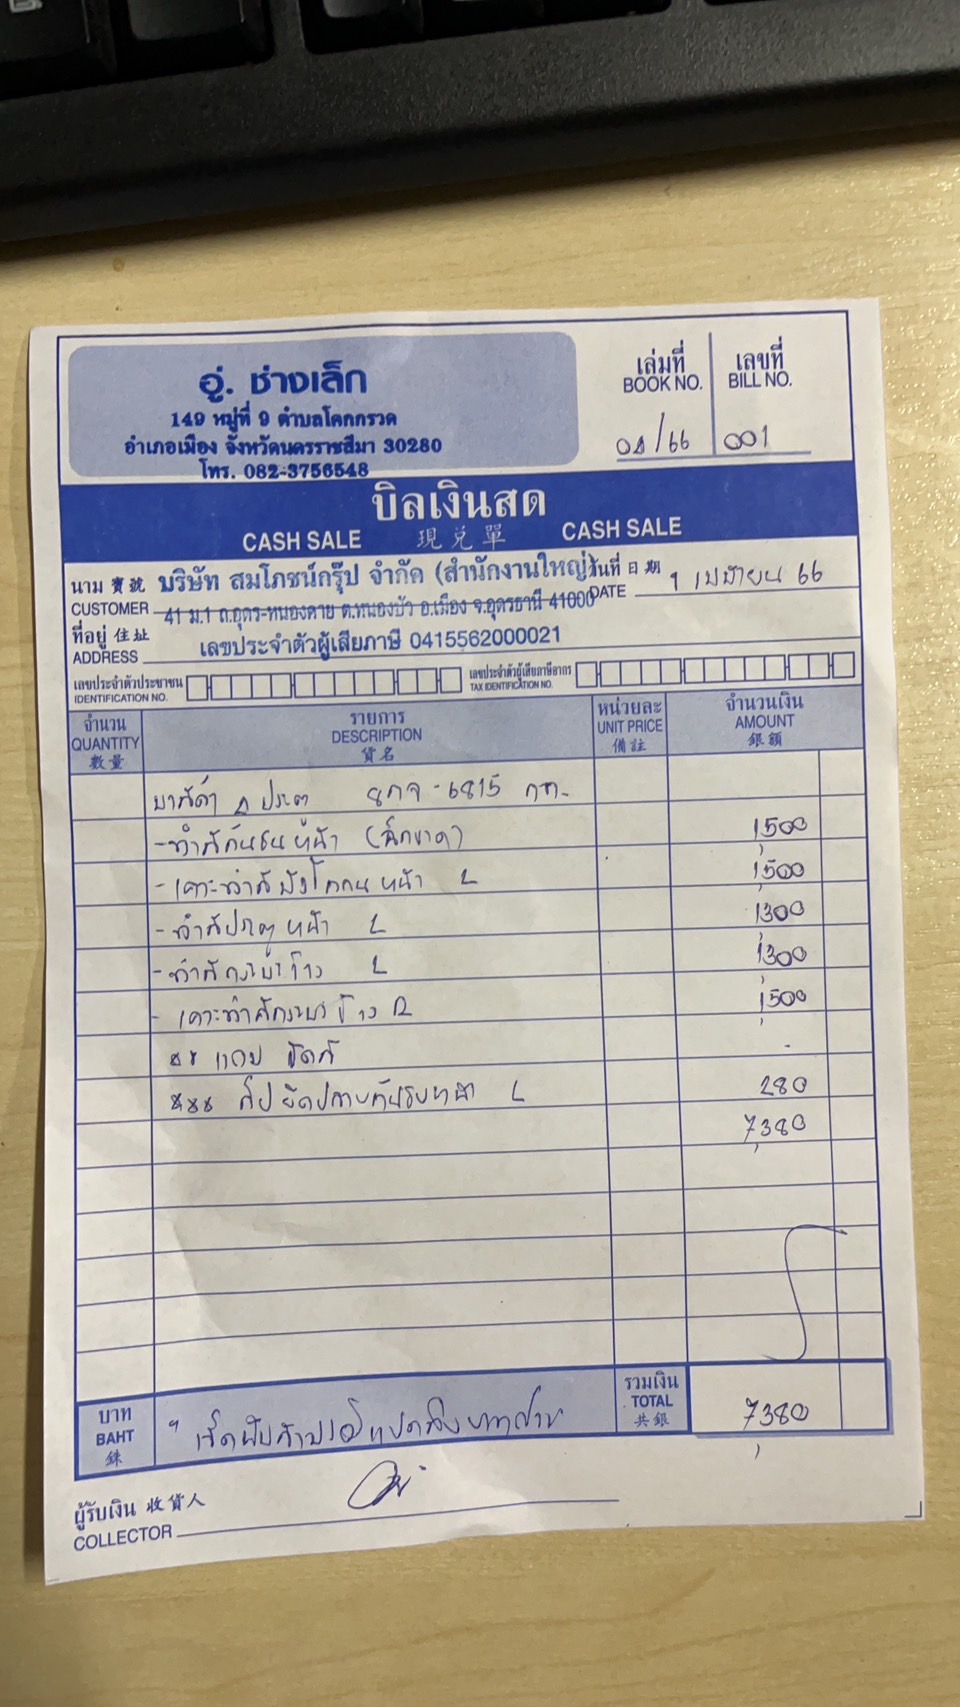 อู่. ช่างเล็ก
149 หมู่ที่ 9 ตำบลโคกกรวด
อำเภอเมือง จังหวัดนครราชสีมา 30280
โทร. 082-3756548
เล่มที่ เลขที่
BOOK NO. BILL NO.
04/66 001
บิลเงินสด
CASH SALE 現兑單 CASH SALE
นาม 寳號 บริษัท สมโภชน์กรุ๊ป จำกัด (สำนักงานใหญ่) วันที่ 日期
CUSTOMER 41 ม.1 ถ.อุดร-หนองคาย ต.หนองบัว อ.เมือง จ.อุดรธานี 41000 DATE 1 เมษายน 66
ที่อยู่ 住址 เลขประจำตัวผู้เสียภาษี 0415562000021
ADDRESS
เลขประจำตัวประชาชน เลขประจำตัวผู้เสียภาษีอากร
IDENTIFICATION NO. TAX IDENTIFICATION NO.
จำนวน รายการ หน่วยละ จำนวนเงิน
QUANTITY DESCRIPTION UNIT PRICE AMOUNT
數量 貨名 備註 銀額
มาสด้า 4 ประตู 8กจ-6815 กท.
-ทำสีกันชนหน้า (ฉีกขาด) 1,500
-เคาะทำสีบังโคลนหน้า L 1,500
-ทำสีประตูหน้า L 1,300
-ทำสี L 1,300
- เคาะทำสี R 1,500
** แถม ขัดสี -
*** กันชนหน้า L 280
7,380
บาท เจ็ดพันสามร้อยแปดสิบบาทถ้วน รวมเงิน
BAHT TOTAL 7,380
銖 共銀
ผู้รับเงิน 收貨人
COLLECTOR